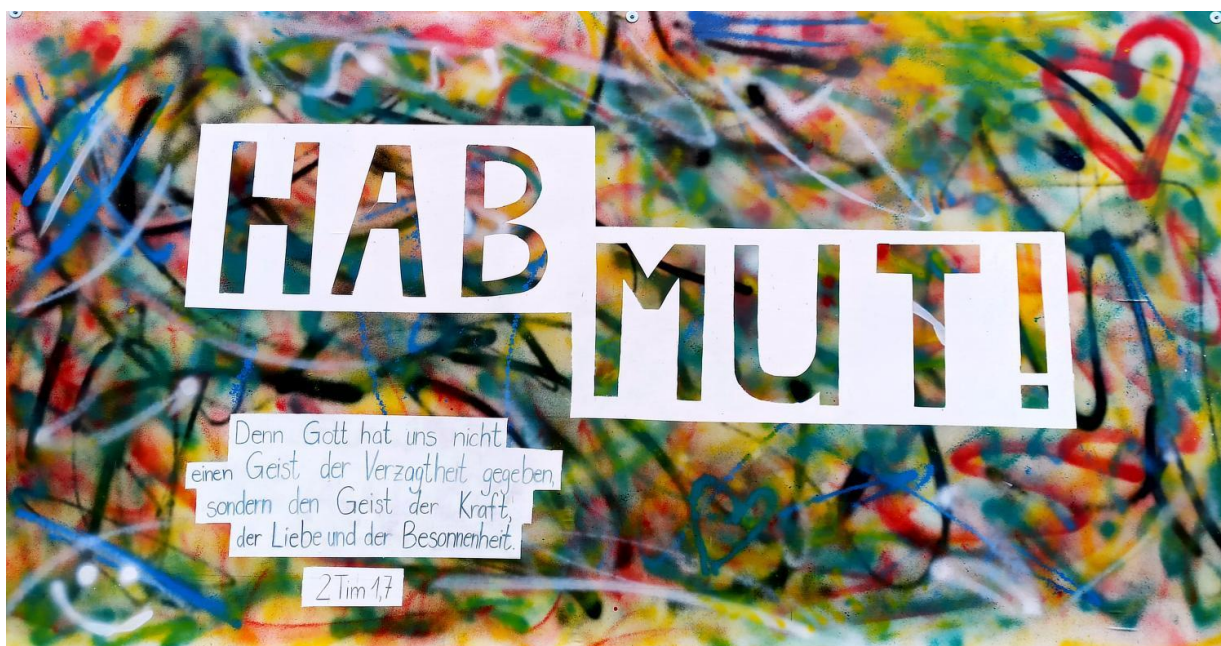 HAB
MUT!
Denn Gott hat uns nicht
einen Geist der Verzagtheit gegeben,
sondern den Geist der Kraft,
der Liebe und der Besonnenheit.
2 Tim 1,7